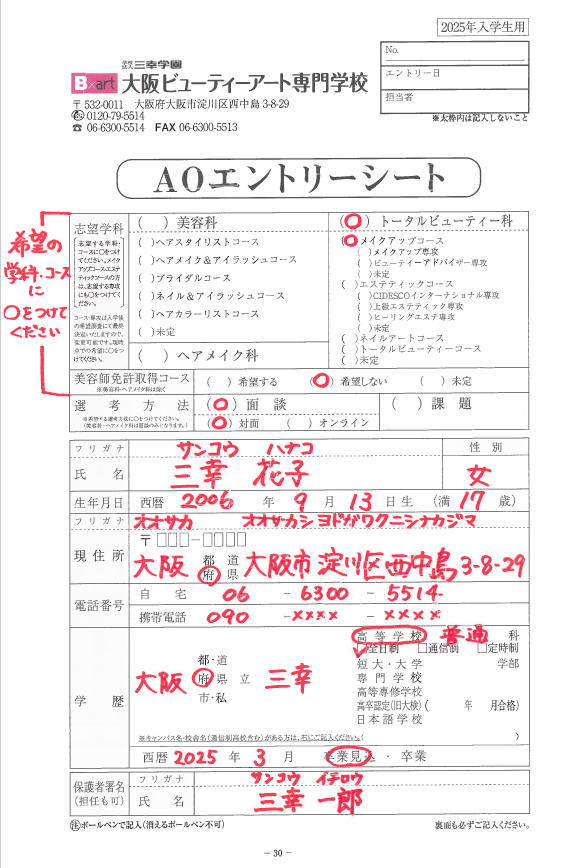 2025年入学生用
No.
エントリー日
担当者
※太枠内は記入しないこと
学校法人 三幸学園
B×art 大阪ビューティーアート専門学校
〒532-0011 大阪府大阪市淀川区西中島 3-8-29
0120-79-5514
☎ 06-6300-5514 FAX 06-6300-5513
AOエントリーシート
希望の
学科・コース
に
〇をつけて
ください
志望学科
志望する学科・
コースに○をつけ
てください。メイク
アップコース・エステ
ティックコースの方
は、志望する専攻
にも○をつけてく
ださい。
コース・専攻は入学後
の希望調査にて最終
決定いたしますので、
変更可能です。現時
点での希望に○をつ
けてください。
( ) 美容科
( )ヘアスタイリストコース
( )ヘアメイク&アイラッシュコース
( )ブライダルコース
( )ネイル&アイラッシュコース
( )ヘアカラーリストコース
( )未定
( ) ヘアメイク科
(〇) トータルビューティー科
(〇)メイクアップコース
( )メイクアップ専攻
( )ビューティーアドバイザー専攻
( )未定
( )エステティックコース
( )CIDESCOインターナショナル専攻
( )上級エステティック専攻
( )ヒーリングエステ専攻
( )未定
( )ネイルアートコース
( )トータルビューティーコース
( )未定
美容師免許取得コース
※美容科・ヘアメイク科は除く
( ) 希望する (〇) 希望しない ( ) 未定
選考方法
※希望する選考方法に○をつけてください。
(美容科・ヘアメイク科は面談のみとなります。)
(〇) 面談
(〇) 対面 ( ) オンライン
( ) 課題
フリガナ サンコウ ハナコ
氏名 三幸 花子
性別
女
生年月日 西暦 2006 年 9 月 13 日生 (満 17 歳)
フリガナ オオサカ オオサカシヨドガワクニシナカジマ
現住所
〒□□□-□□□□
大阪 都道府県 大阪市淀川区西中島3-8-29
電話番号
自宅 06 - 6300 - 5514
携帯電話 090 -×××× - ××××
学歴
大阪 都・道 府 県 立 市・私 三幸
高等学校 普通 科
☑全日制 □通信制 □定時制
短大・大学 学部
専門学校
高等専修学校
高卒認定(旧大検)( 年 月合格)
日本語学校
※キャンパス名・校舎名(通信制高校含む)がある方は、右にご記入ください。( )
西暦 2025 年 3 月 卒業見込 ・ 卒業
保護者署名
(担任も可)
フリガナ サンコウ イチロウ
氏名 三幸 一郎
㊟ボールペンで記入(消えるボールペン不可)
裏面も必ずご記入ください。
- 30 -